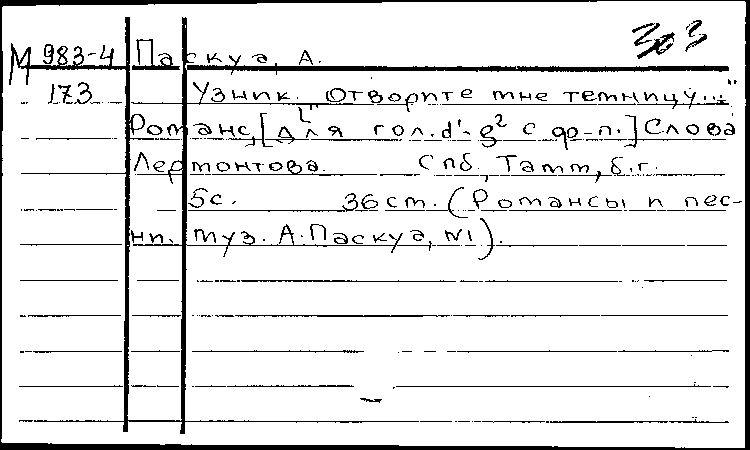 303
М 983-4 Паскуа, А.
173 Узник. „Отворите мне темницу..."
Романс, [для гол. d¹-g² с ф-п.] Слова
Лермонтова. Спб, Тамм, б.г.
5с. 36 ст. (Романсы и пес-
ни. муз. А. Паскуа, №1).